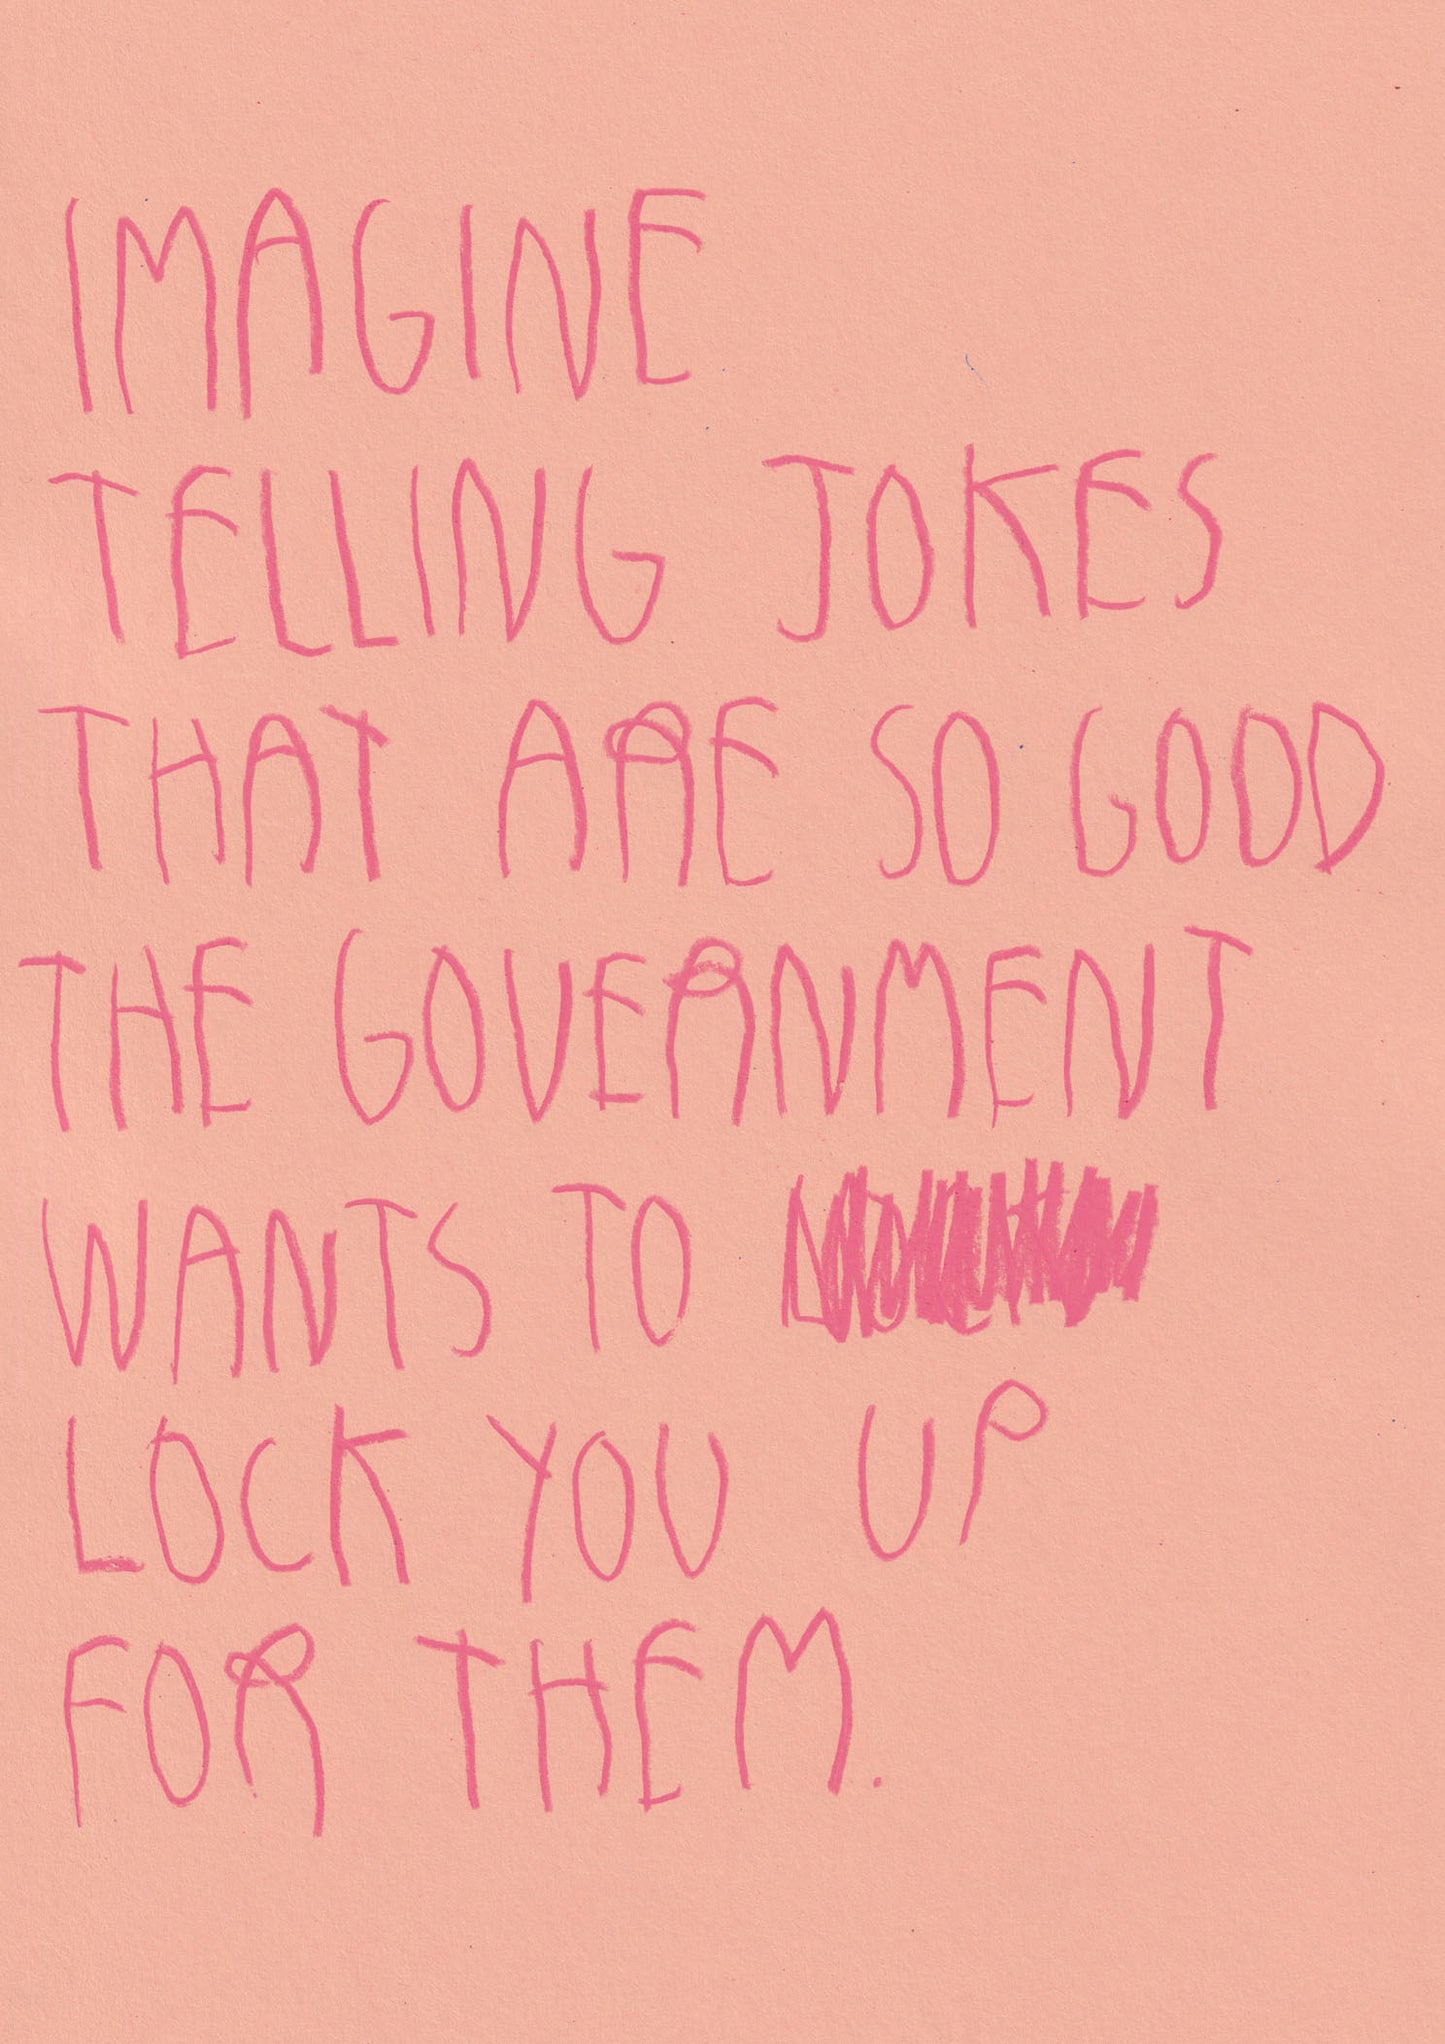 IMAGINE
TELLING JOKES
THAT ARE SO GOOD
THE GOVERNMENT
WANTS TO
LOCK YOU UP
FOR THEM.